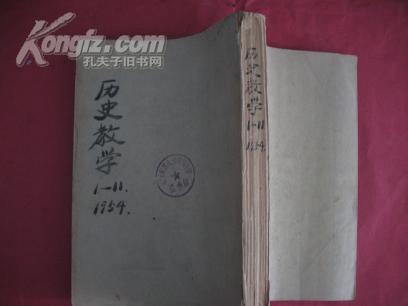 Kongfz.com
孔夫子旧书网
历史教学
1—11.
1954.
历史教学
1—11
1954.